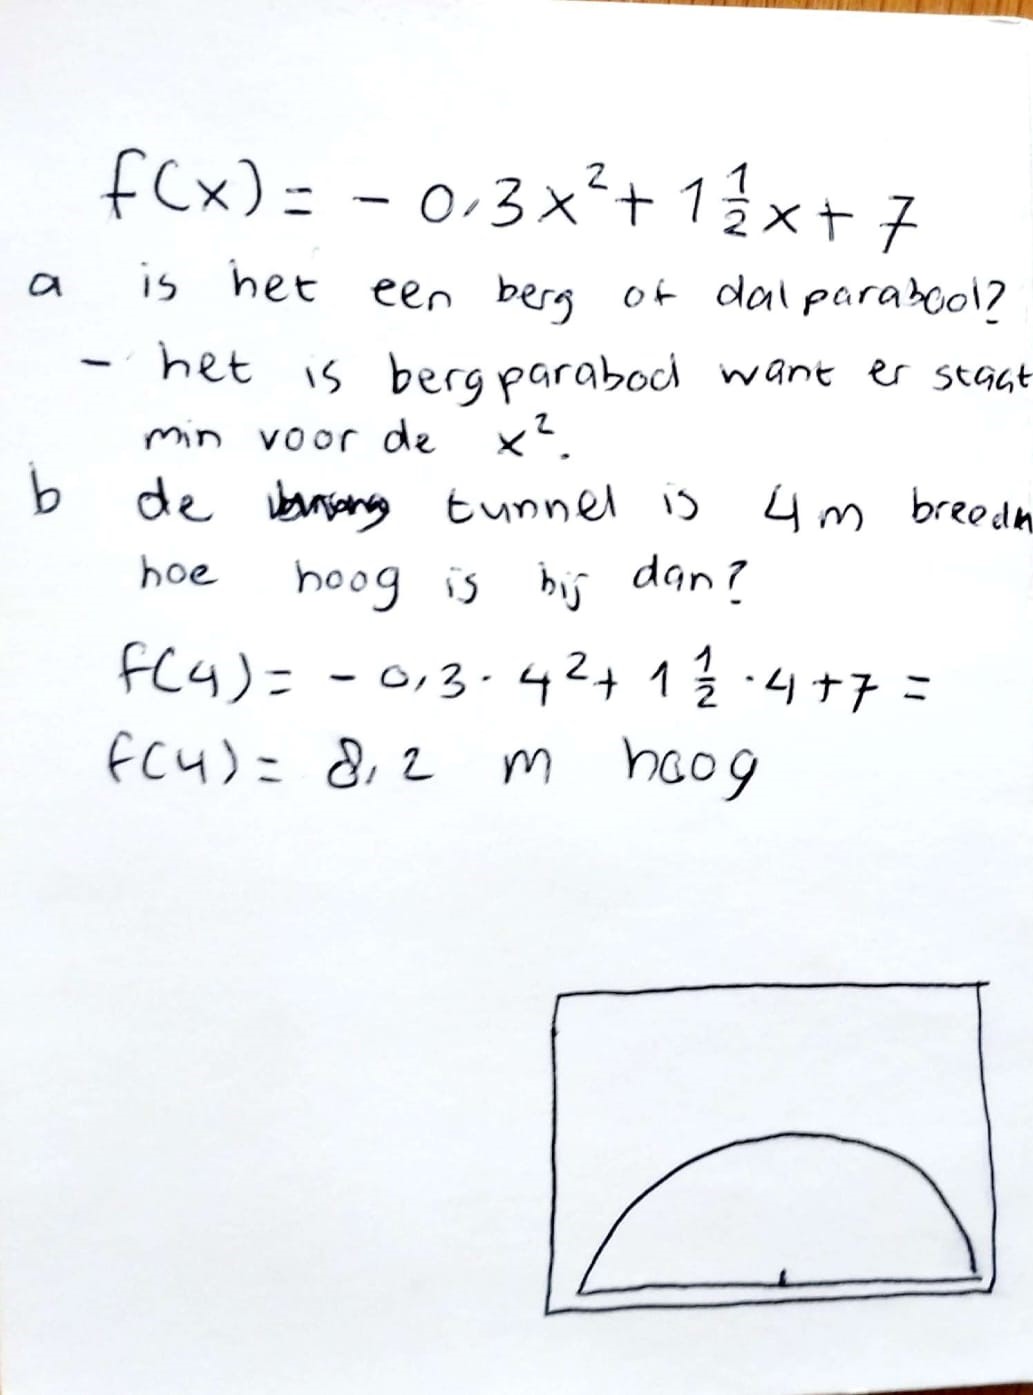 f(x) = - 0,3x² + 1 1/2 x + 7
a is het een berg of dalparabool?
- het is bergparabool want er staat
min voor de x².
b de tunnel is 4m breed
hoe hoog is hij dan?
f(4) = - 0,3 · 4² + 1 1/2 · 4 + 7 =
f(4) = 8,2 m hoog